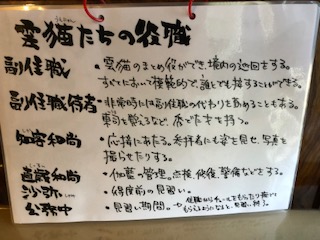 雲猫たちの役職
副住職 ・雲猫のまとめ役ができ、境内の巡回をする。
すべてにおいて積極的で、誰とでも接することができる。
副住職侍者 ・非常時には副住職の代わりを務めることもある。
車司を敬うなど、赤で本を持つ。
知客和尚 ・応接にあたる。参拝者にも姿を見せ、写真を
撮らせたりする。
直歳和尚 ・伽藍の管理、点検、修復、整備などをする。
沙弥 ・得度前の見習い。
公務中 ・見習い期間。